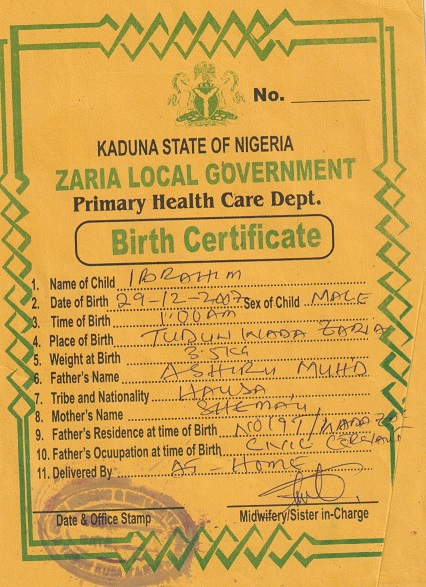 No.
KADUNA STATE OF NIGERIA
ZARIA LOCAL GOVERNMENT
Primary Health Care Dept.
Birth Certificate
1. Name of Child IBRAHIM
2. Date of Birth 29-12-2007 Sex of Child MALE
3. Time of Birth 1:00AM
4. Place of Birth TUDUN WADA ZARIA
5. Weight at Birth 3.5KG
6. Father's Name ASHIRU MUHD
7. Tribe and Nationality HAUSA
8. Mother's Name
9. Father's Residence at time of Birth
10. Father's Ocuupation at time of Birth CIVIC SERVANT
11. Delivered By AT-HOME
Date & Office Stamp Midwifery/Sister in-Charge